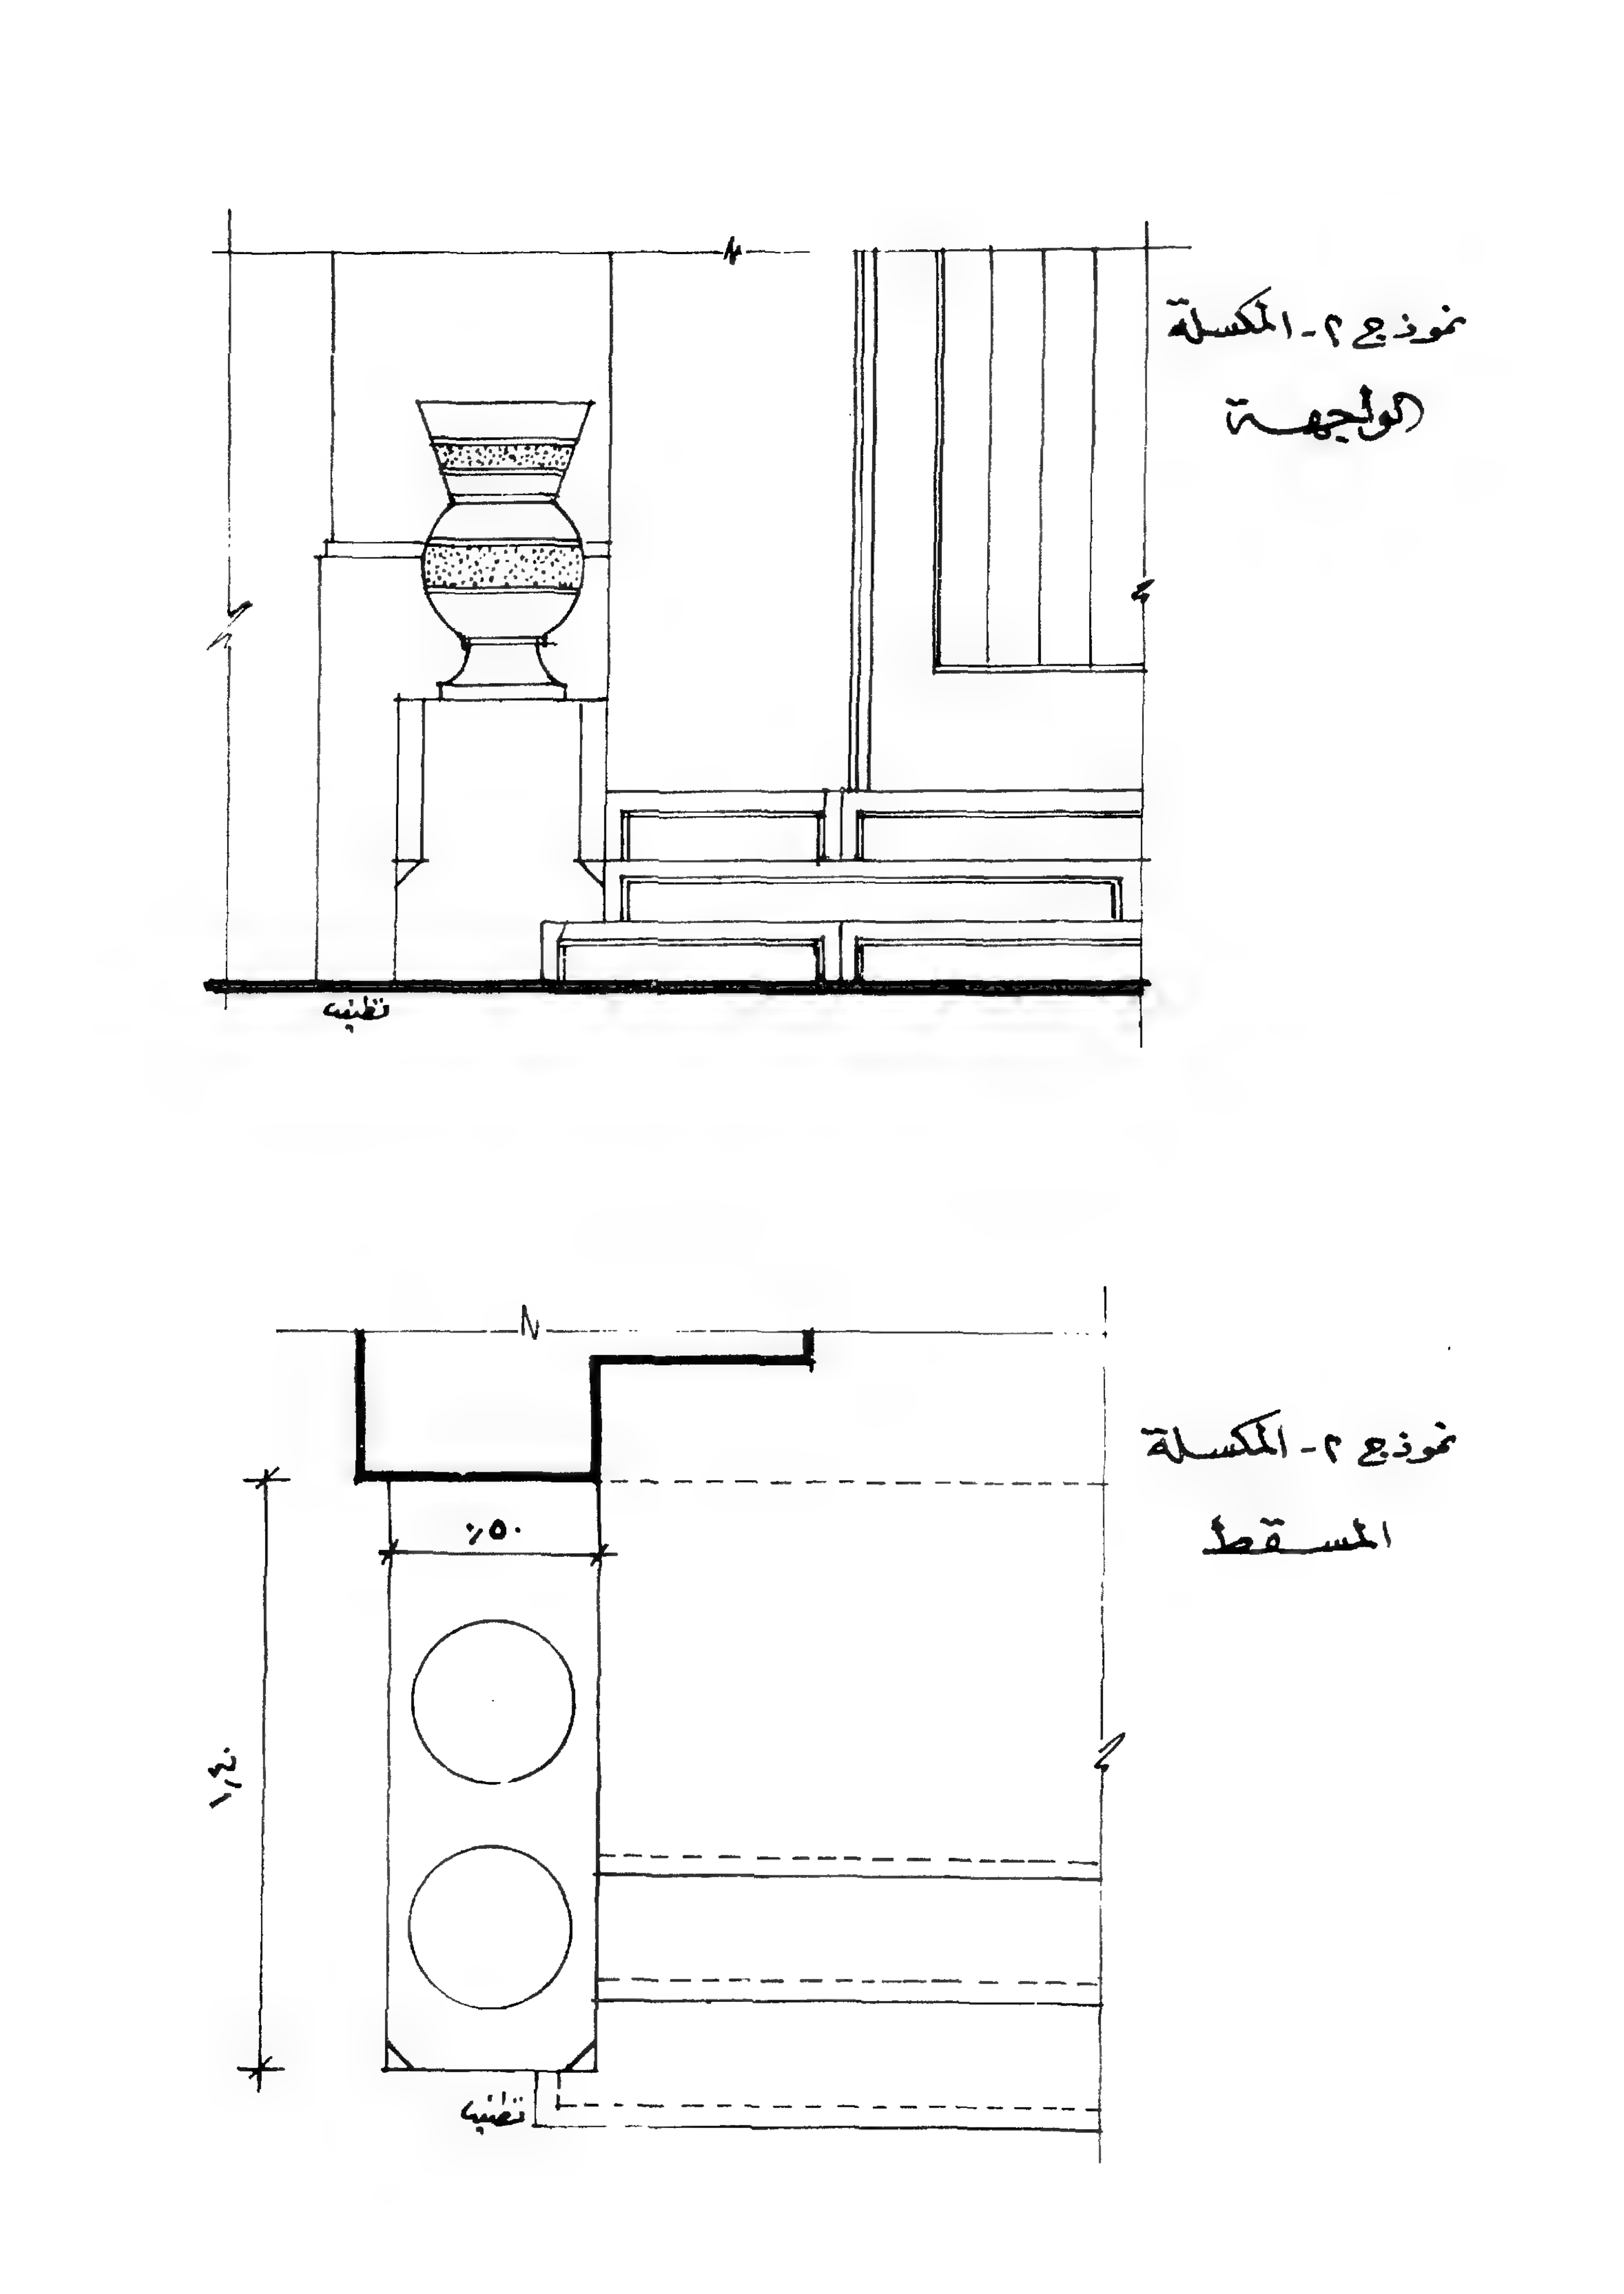 نموذج ٢ - المكسلة
الواجهة
تظنيب
N
نموذج ٢ - المكسلة
المسقط
٫٥٠
١٫٤٠
تظنيب